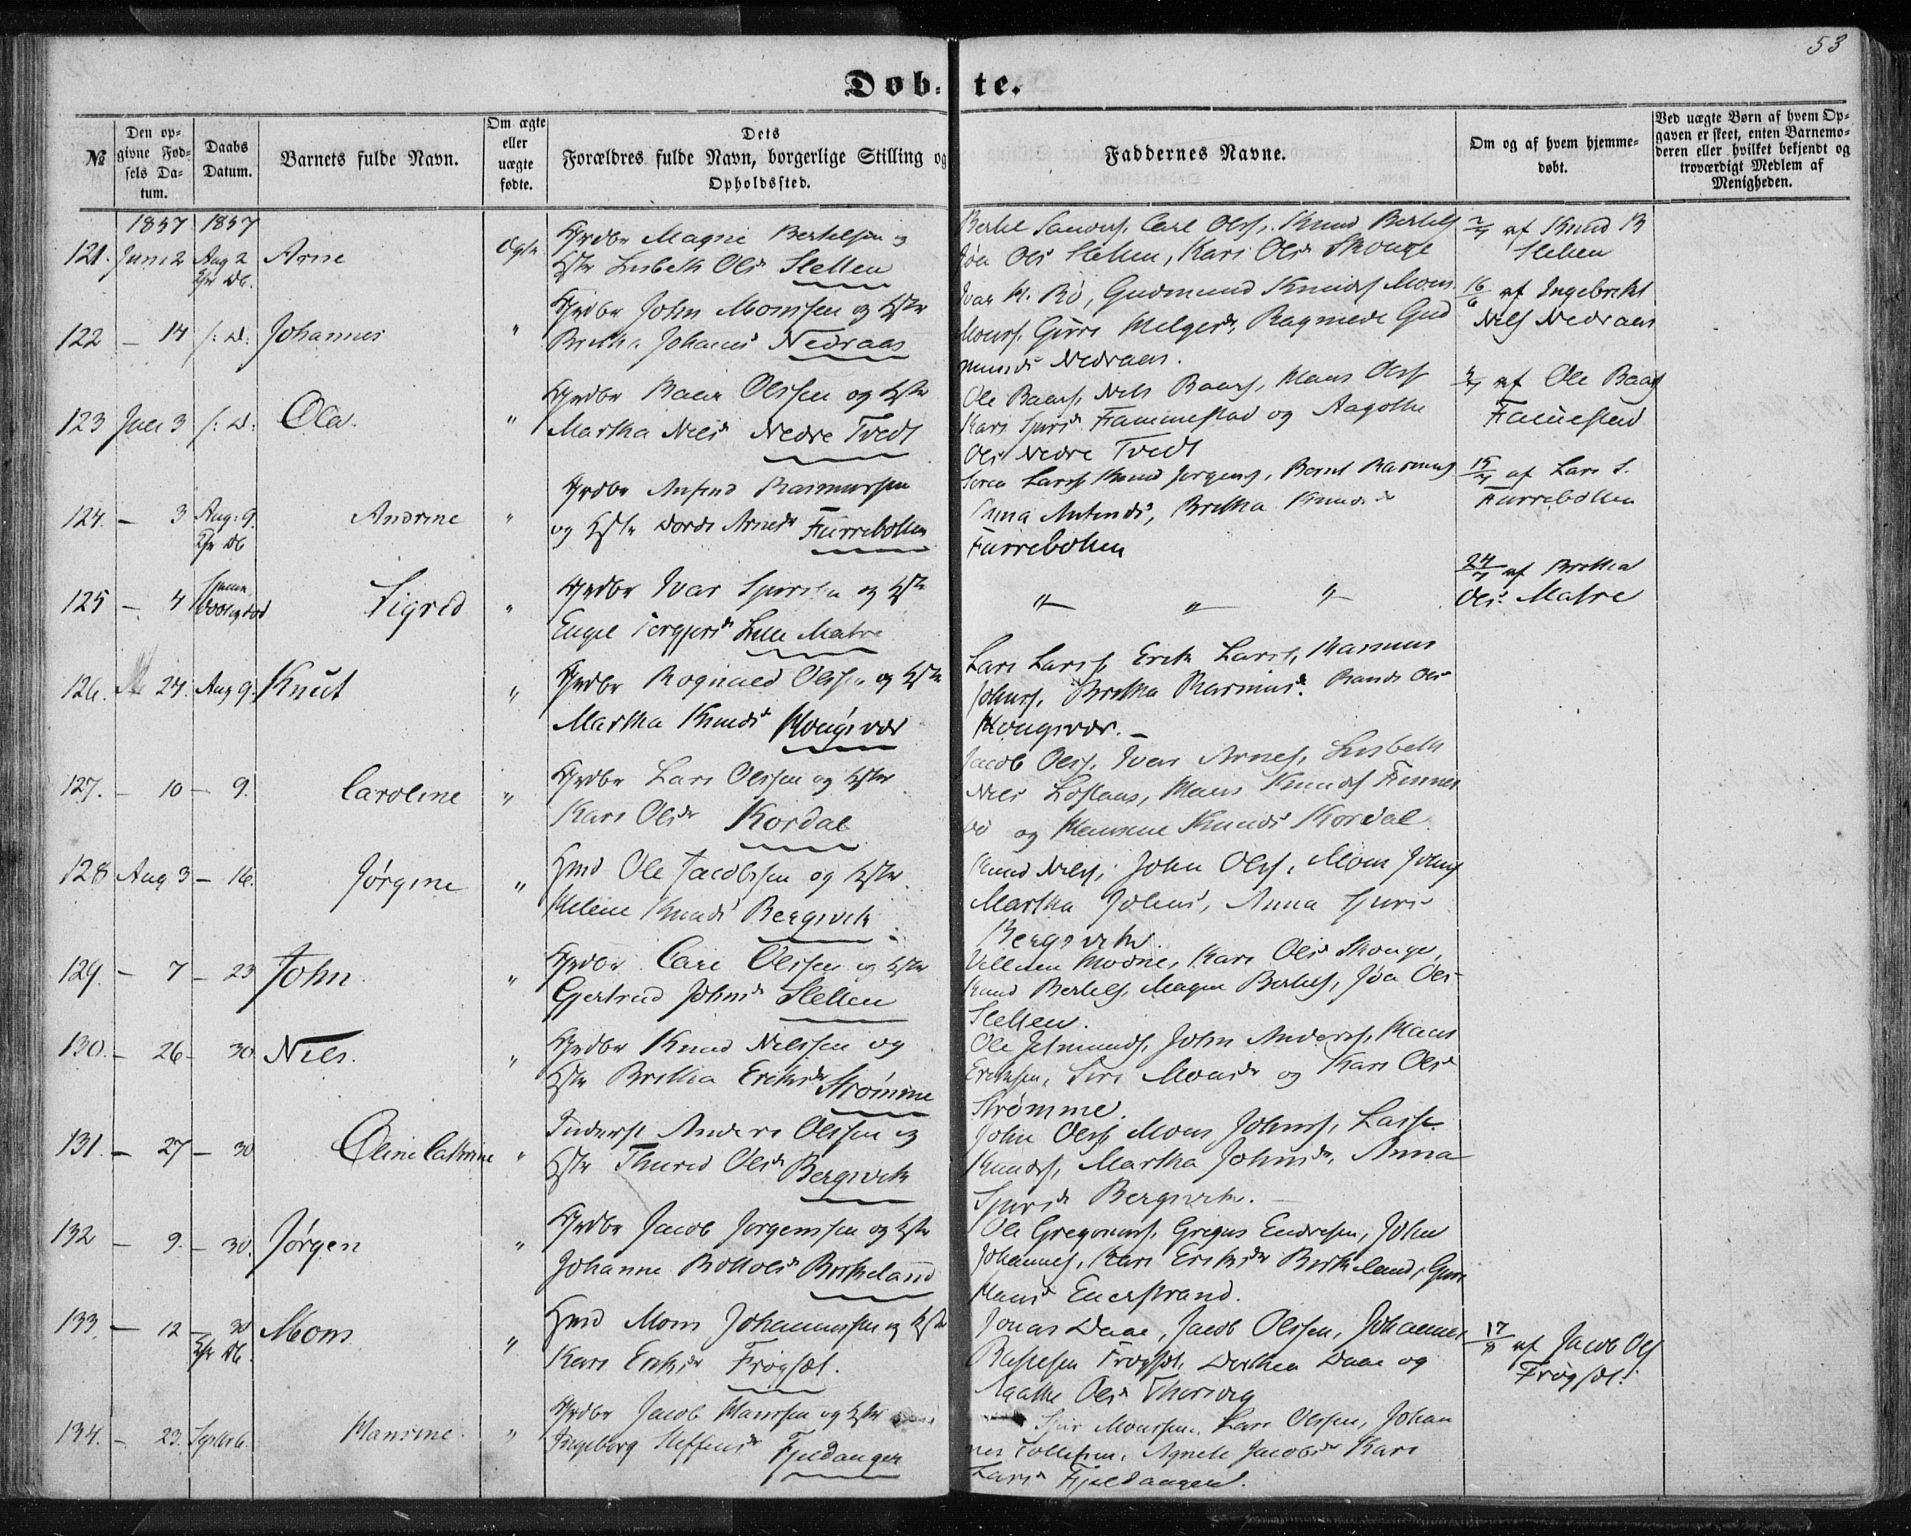 53
Døb- te.
№
Den opgivne Fødsels Datum.
Daabs Datum.
Barnets fulde Navn.
Om ægte eller uægte fødte.
Dets Forældres fulde Navn, borgerlige Stilling og Opholdssted.
Faddernes Navne.
Om og af hvem hjemmedøbt.
Ved uægte Børn af hvem Opgaven er skeet, enten Barnemoderen eller hvilket bekjendt og troværdigt Medlem af Menigheden.
1857 1857
121. Juni 2 Aug 2 Arne Ægte Grdbr Magne Bertelsen og
Hstr Lisbeth Ols Sletten
Carl Olss, Knud Bertels
Ols Sletten, Kari Olsd Skouge
2/7 af Knud B
Sletten
122 — 14 Johannes " Grdbr John Monssen og Hstr
Britha Johannes Nedraas
Ivar K. Bø, Gudmund Knuds Mons
Monss, Guri Helgesd, Ragnilde Gud
munds Nedraas.
16/6 af Ingebrikt
Nels Nedraas
123 Juli 3 Ola. " Grdbr Baar Olssen og Hstr
Martha Nilsd Nedre Tvedt
Ole Baars, Nels Baars, Hans Olss
Kari Sjursd Fammestad og Aagothe
Ols Nedre Tvedt
4/7 af Ole Baars
Famestad
124. — 3 Aug. 9. Andrine " Grdbr Anfind Rasmussen
og Hstr Dorde Arnesd Furrebotten
Larss, Knud Jørgens, Bernt Rasmus
Anna Anfinds, Britha Knudsd
Furrebotten
15/7 af Lars S.
Furrebotten
125 — 4 Sigrid " Grdbr Ivar Sjurssen og Hstr
Engel Torgjersd Lille Matre
" " "
24/7 af Britha
Ols. Matre
126. 24 Aug 9. Knut " Grdbr Rognald Olssen og Hstr
Martha Knudsd Kongsvær
Lars Larss, Erik Larss, Rasmus
Johns, Britha Rasmusd. Rande Ols
Kongsvær.
127. — 10 — 9. Caroline " Grdbr Lars Olssen og Hstr
Kari Olsd Kordal
Jacob Olss, Ivar Arnes, Lisbeth
Nels Hans Knuds
og Knuds Kordal.
128 Aug 3 — 16. Jørgine " Hmd Ole Jacobssen og Hstr
Helene Knuds Bergsvik
Knud Nelss, John Olss, Mons Johns
Martha Johns, Anna Sjurs
Bergsvik.
129. — 7 — 23 John. " Grdbr Carl Olssen og Hstr
Gjertrud Johnsd Sletten
Kari Olsd Skouge,
Knud Bertels, Magne Bertels, Jøn Ols
Sletten.
130. — 26 — 30. Nils. " Grdbr Knud Nilssen og
Hstr Britha Eriksd Strømme
Ole Jetmunds, John Anderss, Hans
Erikssen, Siri Monsd og Kari Olsd
Strømme.
131. — 27 — 30 Oline Cathrine " Inderst Anders Olssen og
Hstr Thurid Olsd Bergsvik
John Olss Mons Johnss, Lasse
Knuds, Martha Johnsd, Anna
Sjursd Bergsvik.
132 — 9. — 30. Jørgen " Grdbr Jacob Jørgenssen og Hstr
Johanne Botolsd Birkeland
Ole Gregoriuss, Gregus Endresen, John
Johannes, Kari Eriksd Birkeland, Guri
Hansd Enerstrand.
133. — 12 — 30 Mons " Hmd Mons Johannessen og Hstr
Kari Eriksd Frøgset.
Jonas Daae, Jacob Olssen, Johannes
Frøgset, Dorthea Daae og
Agathe Olsd
17/8 af Jacob Ols
Frøgset.
134. — 23. Septbr 6. Hansine. " Grdbr Jacob Hanssen og Hstr
Ingeborg Steffensd Fjeldanger
Sjur Monssen, Lars Olssen, Johan
nes Tollefsen, Agnete Jacobsd Kari
Larsd Fjeldanger.